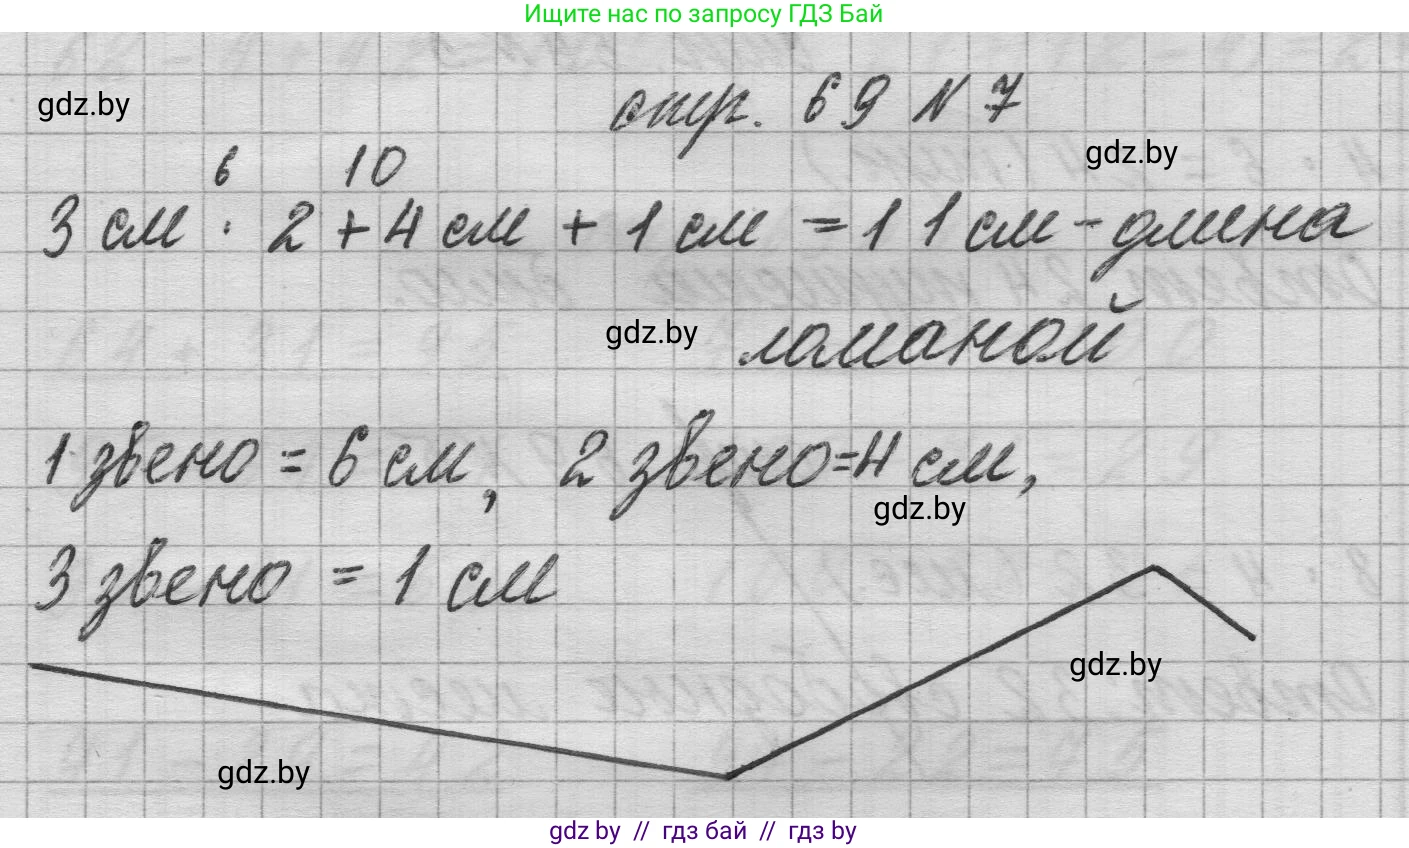 Ищите нас по запросу ГДЗ Бай
gdz.by
стр. 69 N 7
gdz.by
6 10
3 см · 2 + 4 см + 1 см = 11 см - длина
gdz.by
ломаной
1 звено = 6 см, 2 звено = 4 см,
gdz.by
3 звено = 1 см
gdz.by
gdz.by
gdz by // гдз бай // гдз by